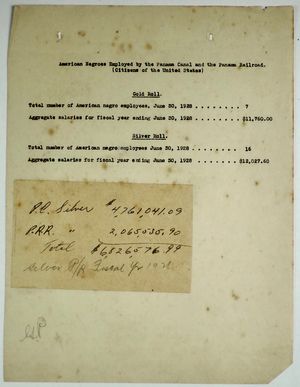 American Negroes Employed by the Panama Canal and the Panama Railroad.
(Citizens of the United States)
Gold Roll.
Total number of American negro employees, June 30, 1928 . . . . . . . . . 7
Aggregate salaries for fiscal year ending June 30, 1928 . . . . . . . . $11,760.00
Silver Roll.
Total number of American negro employees June 30, 1928 . . . . . . . . . 16
Aggregate salaries for fiscal year ending June 30, 1928 . . . . . . . . $12,027.60
P.C. Silver $4,761,041.09
P.R.R. " 2,065,535.90
Total $6,826,576.99
Silver P/R Fiscal Yr